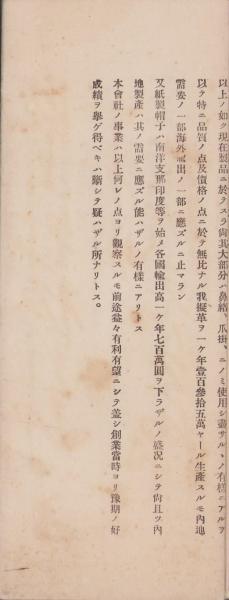 以上ノ如ク現在製品ニ於テスラ尚其大部分ハ鼻緒、爪掛、ニノミ使用シ盡サルヽノ有樣ニアルヲ
以テ特ニ品質ノ点及價格ノ点ニ於テ無比ナル我擬革ヲ一ケ年壹百參拾五萬ヤール生產スルモ內地
需要ノ一部海外輸出ノ一部ニ應ズルニ止マラン
又紙製帽子ハ南洋支那印度等ヲ始メ各國輸出高一ケ年七百萬圓ヲ下ラザルノ盛况ニシテ尙且ツ內
地製產ハ其ノ需要ニ應ズル能ハザルノ有樣ニアリトス
本會社ノ事業ハ以上何レノ点ヨリ觀察スルモ前途益々有利有望ニシテ盖シ創業當時ヨリ豫期ノ好
成績ヲ擧ゲ得ベキハ斷シテ疑ハザル所ナリトス。